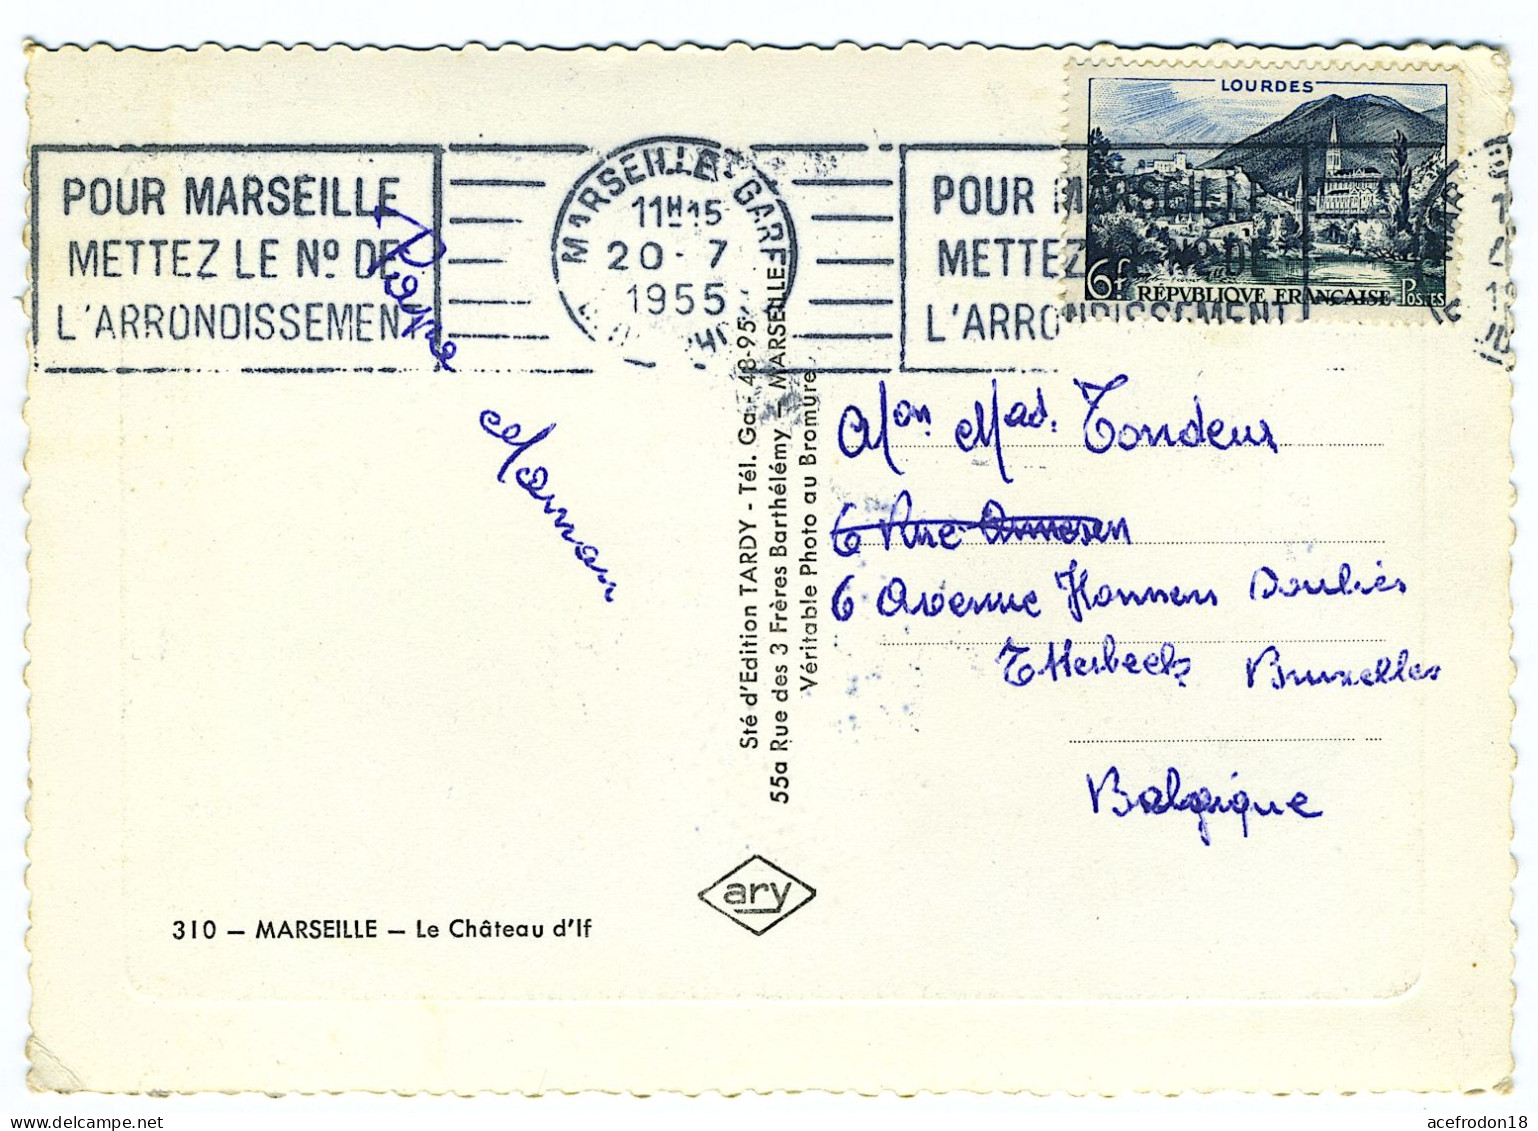 LOURDES
6f
RÉPVBLIQVE FRANÇAISE POSTES
POUR MARSEILLE
METTEZ LE Nº DE
L'ARRONDISSEMENT
MARSEILLE GARE
11H15
20-7
1955
POUR MARSEILLE
METTEZ LE Nº DE
L'ARRONDISSEMENT
Maman
Sté d'Edition TARDY - Tél. Ga. 48-95
55a Rue des 3 Frères Barthélémy - MARSEILLE
Véritable Photo au Bromure
Mon Mad. Tondeur
6 Rue
6 Avenue Hansen Soulies
Etterbeek Bruxelles
Belgique
ary
310 — MARSEILLE — Le Château d'If
acefrodon18